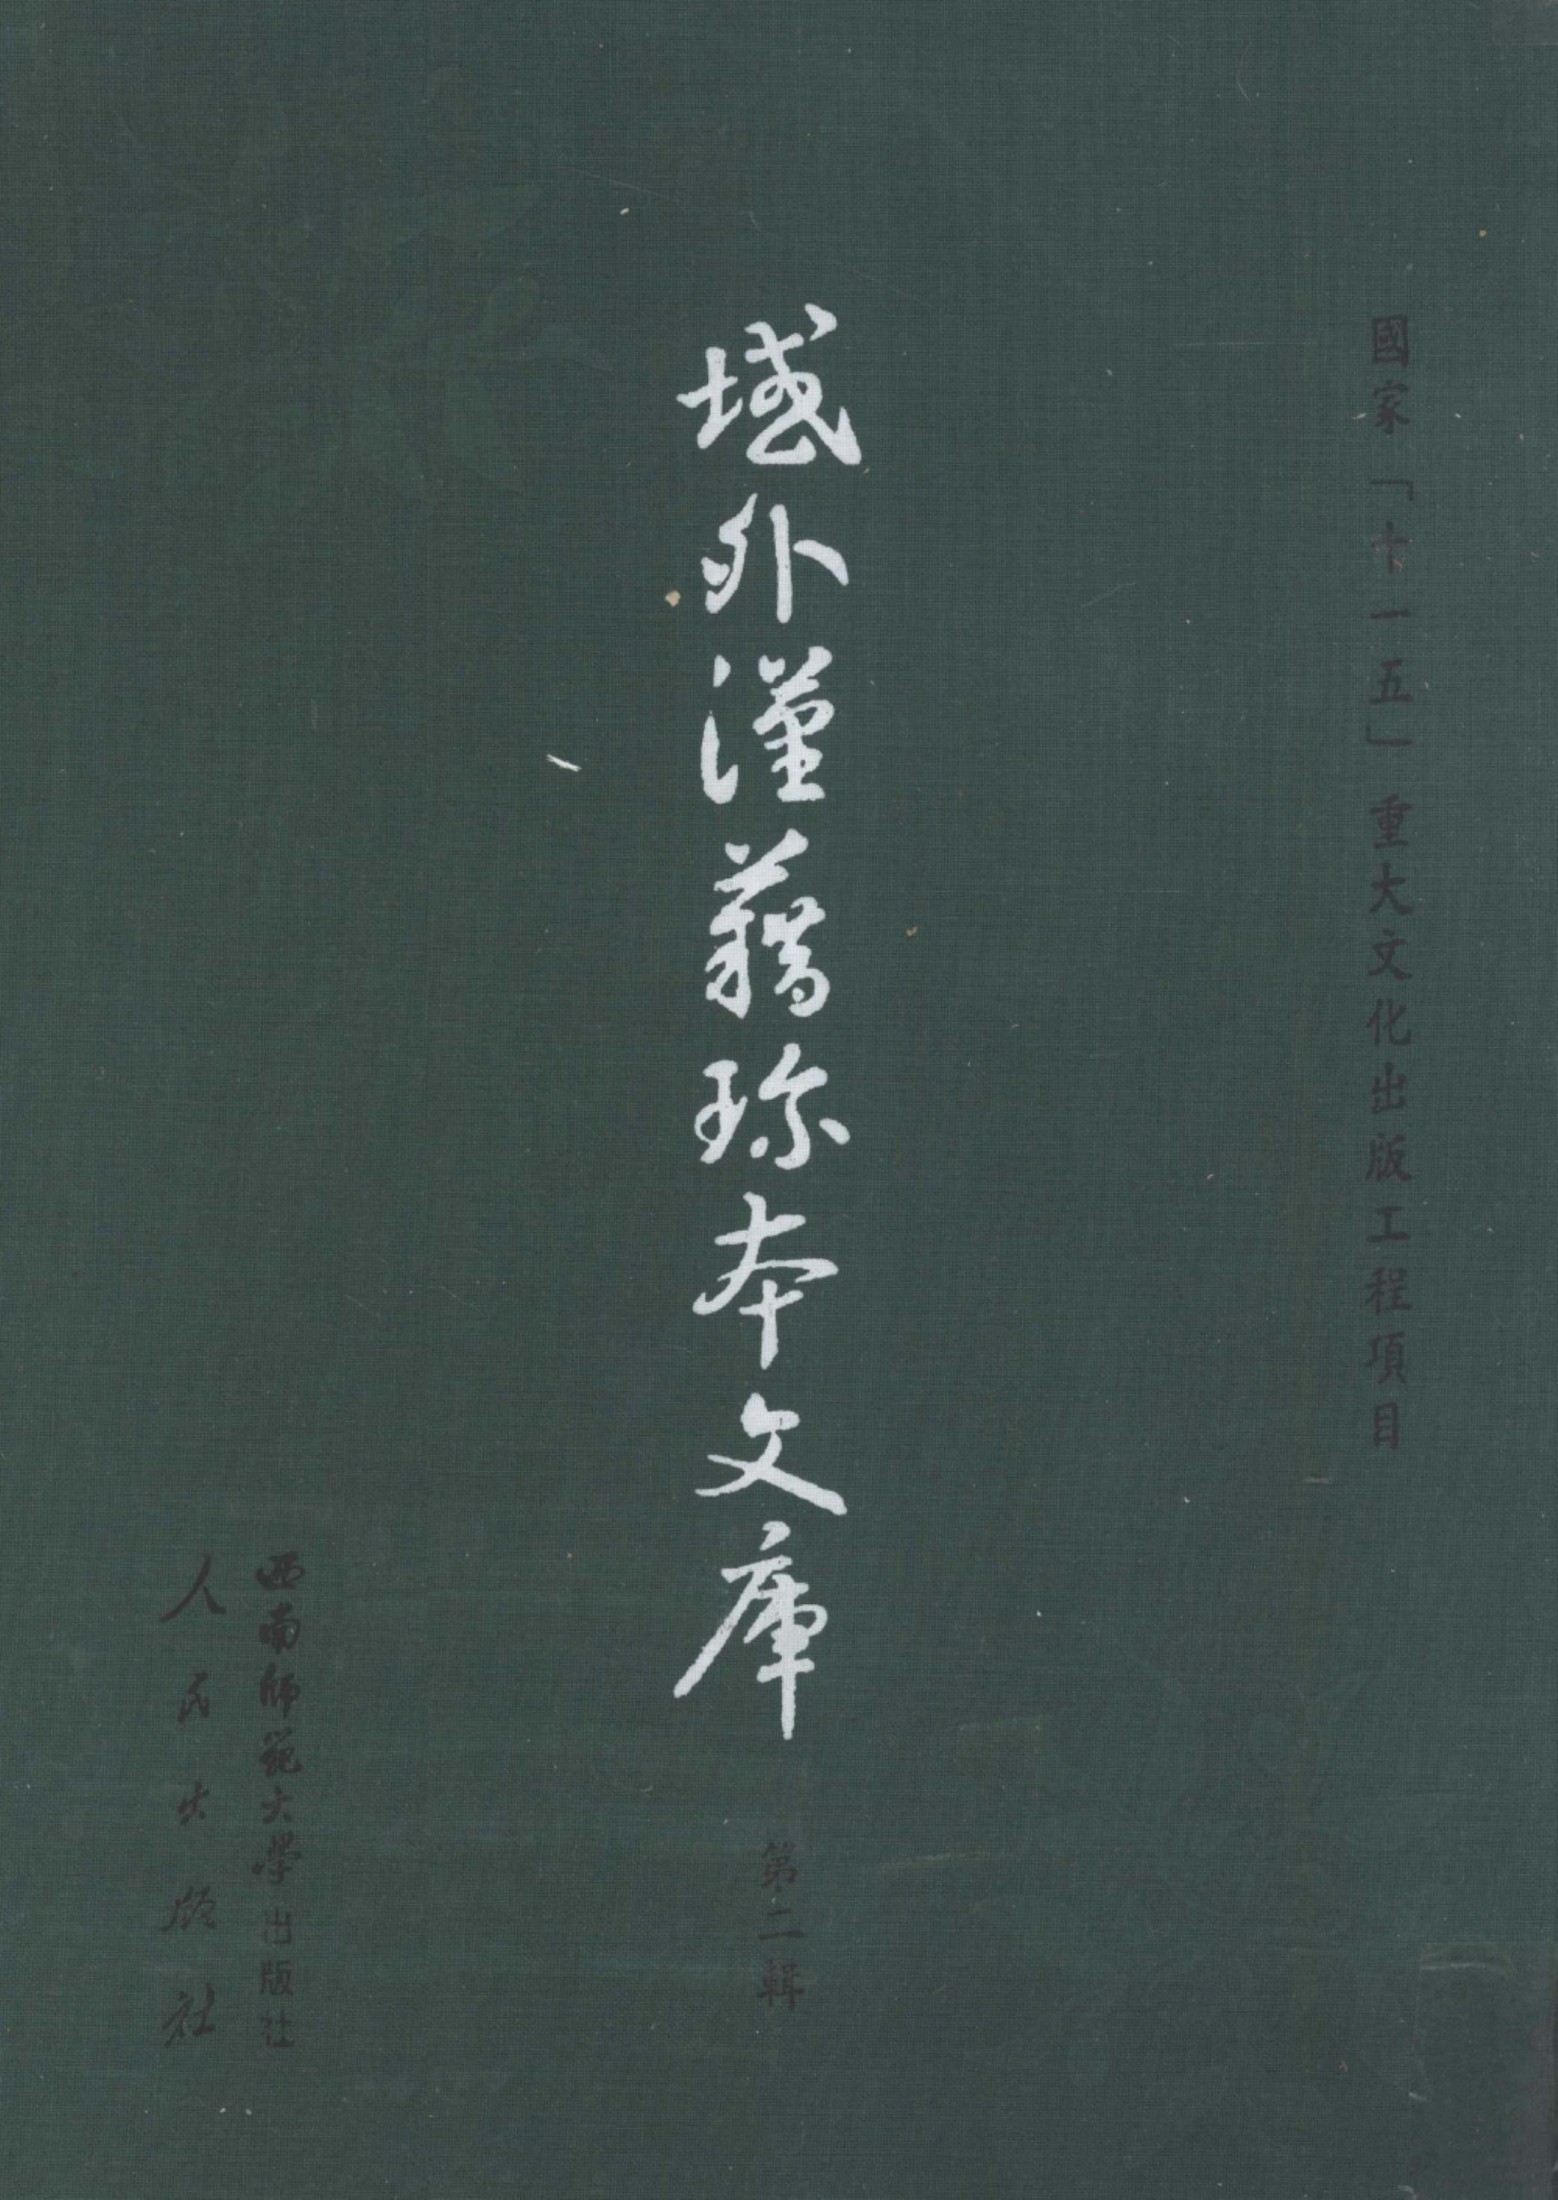 國家「十一五」重大文化出版工程項目
域外漢籍珍本文庫
第二輯
西南師範大學出版社
人民出版社